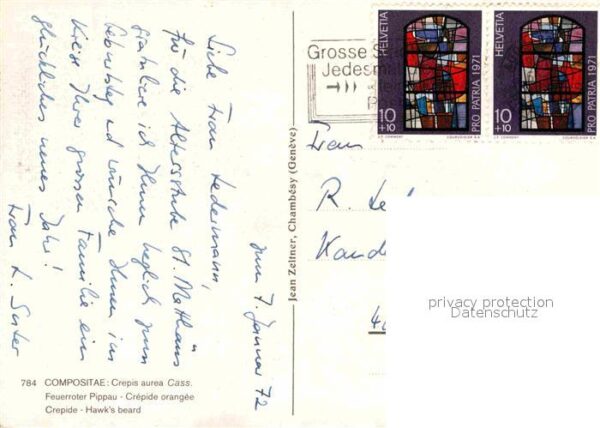 Liebe Frau Ledermann,
für die Altersstube St. Mathäus
gratuliere ich Ihnen herzlich zum
Geburtstag und wünsche Ihnen im
Kreise Ihrer grossen Familie ein
glückliches neues Jahr!
Frau L. Suter
zum 7. Januar 72
784 COMPOSITAE: Crepis aurea Cass.
Feuerroter Pippau - Crépide orangée
Crepide - Hawk's beard
Jean Zeltner, Chambésy (Genève)
Grosse
Jedesma
HELVETIA
PRO PATRIA 1971
10
+10
COURVOISIER S.A.
HELVETIA
PRO PATRIA 1971
10
+10
COURVOISIER S.A.
Frau
R. Le
Kande
privacy protection
Datenschutz